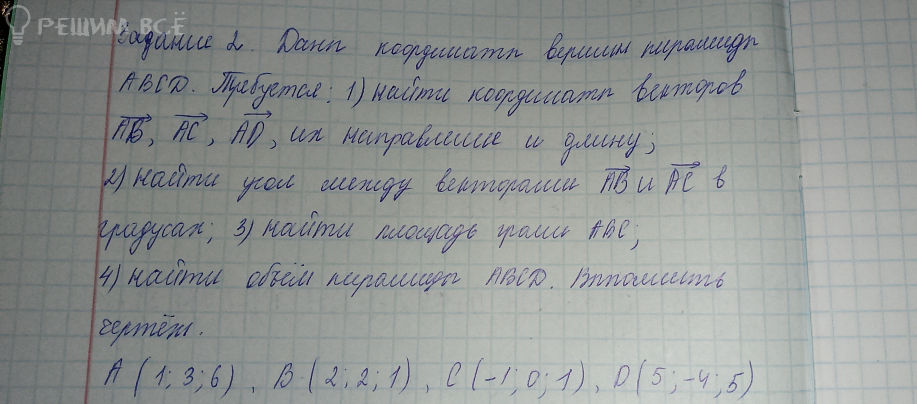 РЕШИМ ВСЁ
Задание 2. Даны координаты вершин пирамиды
ABCD. Требуется: 1) найти координаты векторов
AB, AC, AD, их направление и длину;
2) найти угол между векторами AB и AC в
градусах; 3) найти площадь грани ABC;
4) найти объём пирамиды ABCD. Выполнить
чертёж.
A (1; 3; 6), B (2; 2; 1), C (-1; 0; 1), D (5; -4; 5)